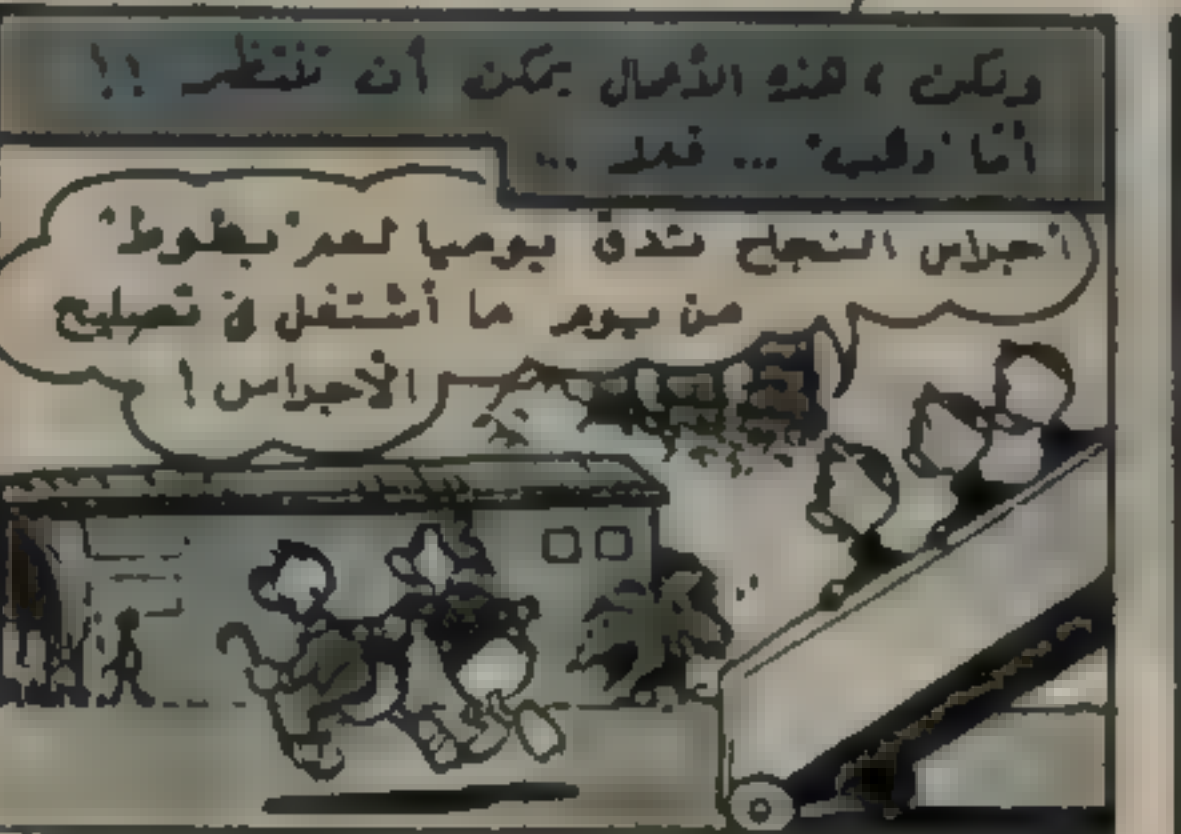 ولكن ، هذه الأعمال يمكن أن تنتظر !!
أمّا ... فقد ...
أجراس النجاح تدق يوميا لعم "بطوط"
من يوم ما أشتغل في تصليح
الأجراس !